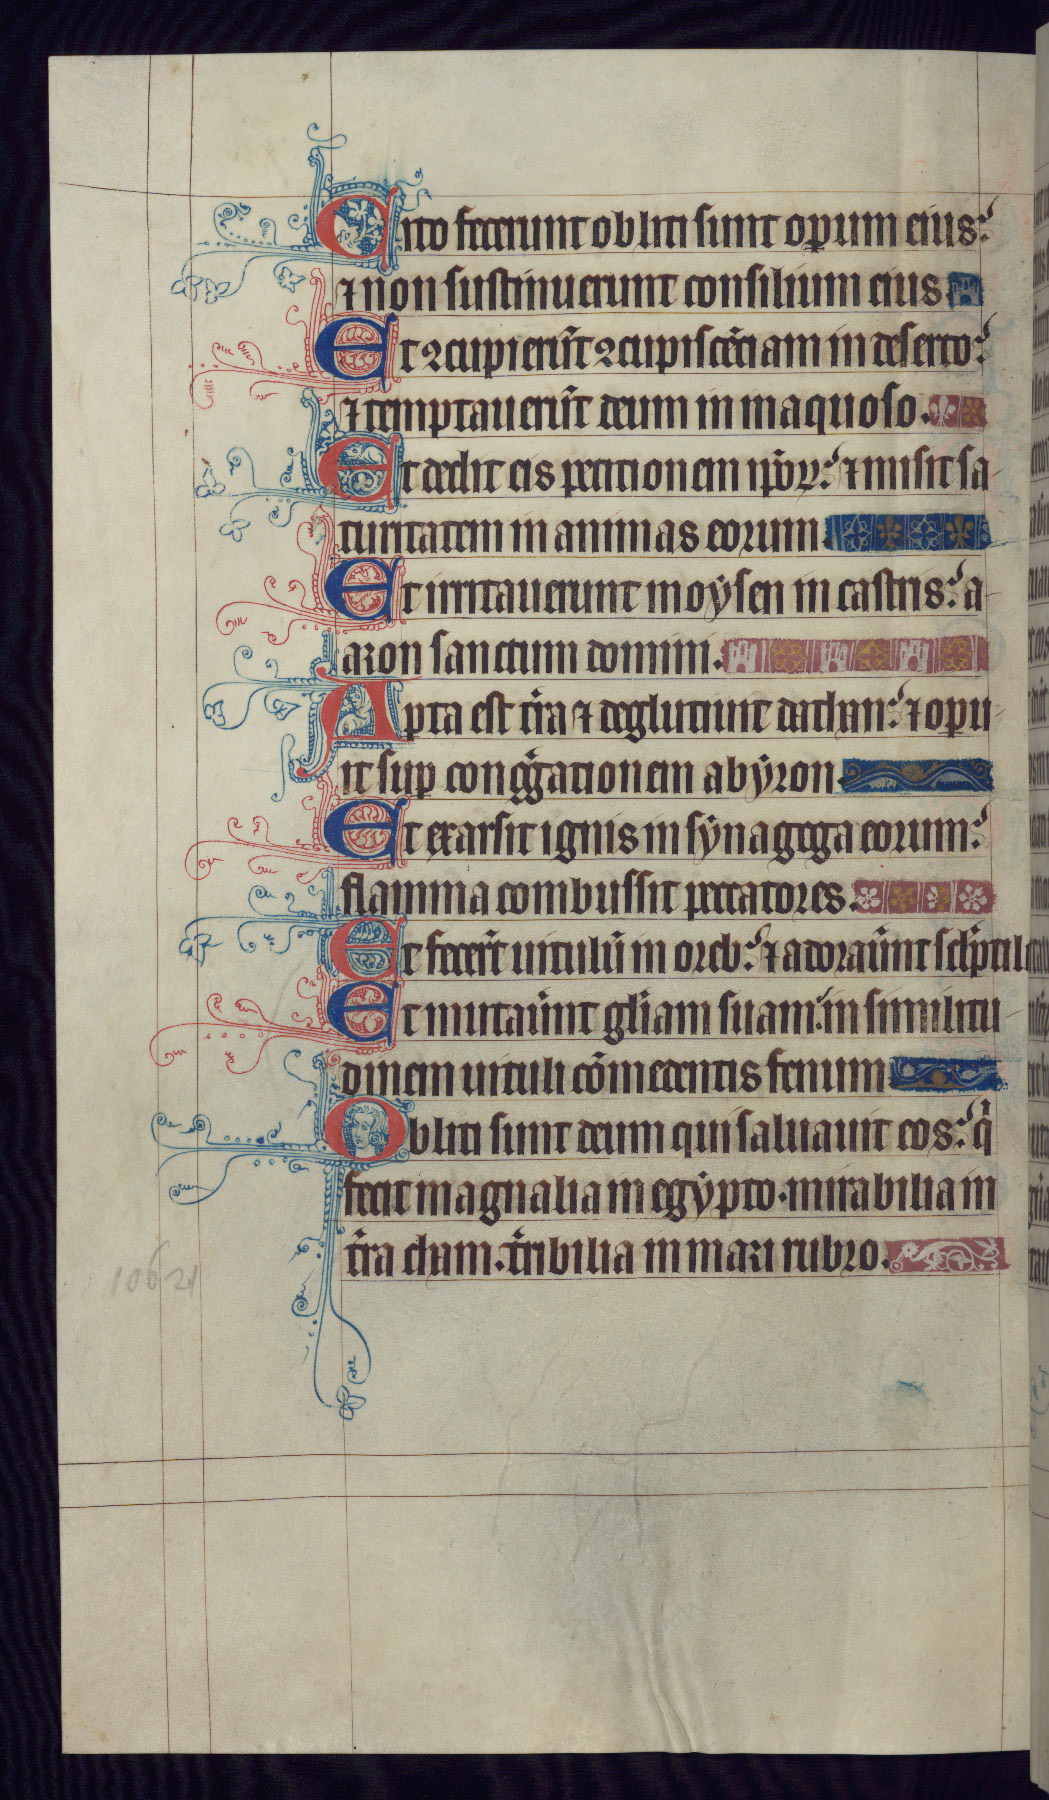 Cito fecerunt obliti sunt opum eius:
⁊ non sustinuerunt consilium eius
Et ꝯcupierūt ꝯcupiscēciam in deserto:
⁊ temptauerūt deum in inaquoso.
Et dedit eis peticionem ip̄oꝝ: ⁊ misit sa-
turitatem in animas eorum
Et irritauerunt moẏsen in castris: a-
aron sanctum domini.
Apta est t̄ra ⁊ deglutiuit dathan: ⁊ opu-
it sup congg̃ationem abẏron
Et exarsit ignis in sẏnagoga eorum:
flamma combussit peccatores.
Et fecer̄t uitulū in oreb: ⁊ adoraūnt sclp̄tile
Et mutaūnt gl̄iam suam: in similitu-
dinem uituli cōmedentis fenum
Obliti sunt deum qui saluauit eos: q̄
fecit magnalia in egẏpto. mirabilia in
t̄ra cham. t̄ribilia in mari rubro.
106-21